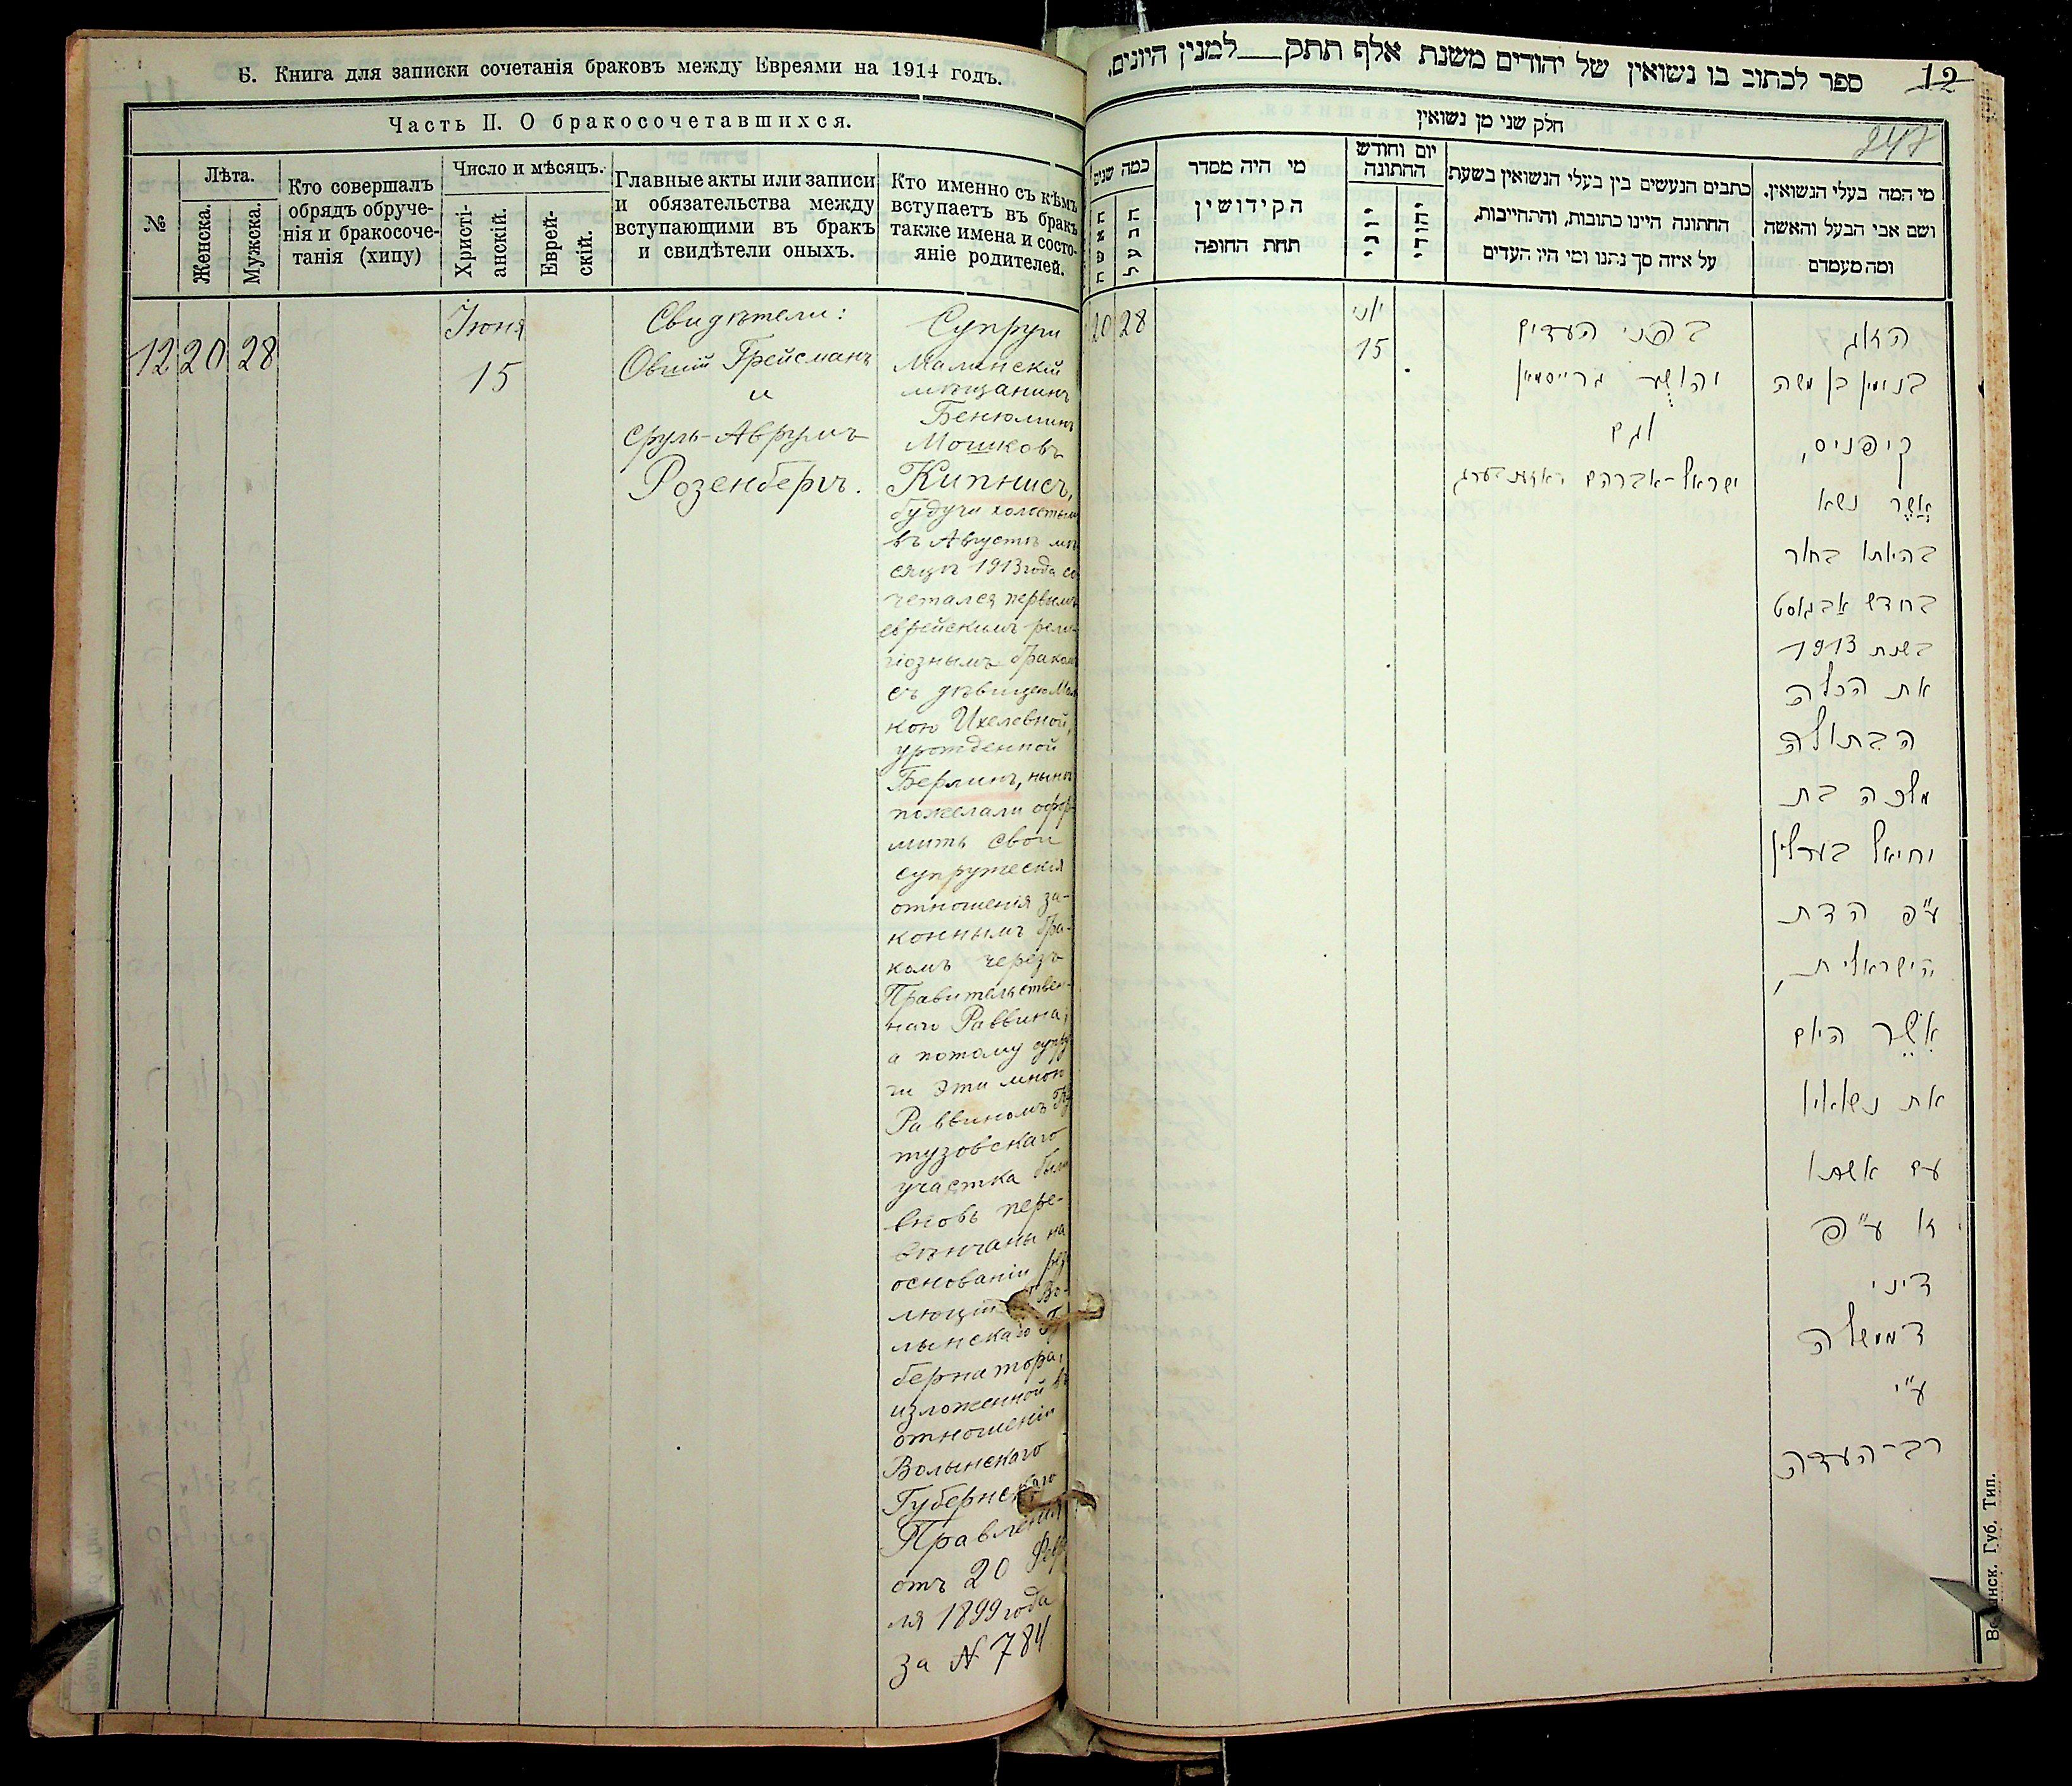 Б. Книга для записки сочетанія браковъ между Евреями на 1914 годъ.
Часть II. О бракосочетавшихся.
№
Лѣта.
Женска.
Мужска.
Кто совершалъ
обрядъ обруче-
нія и бракосоче-
танія (хипу)
Число и мѣсяцъ.
Христі-
анскій.
Еврей-
скій.
Главные акты или записи
и обязательства между
вступающими въ бракъ
и свидѣтели оныхъ.
Кто именно съ кѣмъ
вступаетъ въ бракъ
также имена и состо-
яніе родителей.
12
20
28
Іюня
15
Свидѣтели:
Овшій Грейсманъ
и
Сруль-Аврумъ
Розенбергъ.
Супруги
мѣщанинъ
Бенюминъ
Мошковъ
Кипнисъ,
будучи холостымъ
въ Августѣ мѣ-
сяцѣ 1913 года со-
четался первымъ
еврейскимъ рели-
гіознымъ бракомъ
съ дѣвицею Мал-
кою Ихеловной,
урожденной
Берлинъ, нынѣ
пожелали офор-
мить свои
супружескія
отношенія за-
коннымъ бра-
комъ черезъ
Правительствен-
наго Раввина,
а потому супру-
ги эти мною
Раввиномъ
тузовскаго
участка были
вновь пере-
вѣнчаны на
основаніи резо-
люціи Во-
лынскаго Гу-
бернатора,
изложенной въ
отношеніи
Волынскаго
Губернскаго
Правленія
отъ 20 Февра-
ля 1899 года
за № 784
ספר לכתוב בו נשואין של יהודים משנת אלף תתק— למנין היונים.
12
247
חלק שני מן נשואין
כמה שנים
האשה
הבעל
מי היה מסדר
הקידושין
תחת החופה
יום וחודש
החתונה
יוני
יהודי
כתבים הנעשים בין בעלי הנשואין בשעת
החתונה היינו כתובות, והתחייבות,
על איזה סך נתנו ומי היו העדים
מי המה בעלי הנשואין.
ושם אבי הבעל והאשה
ומה מעמדם
20
28
יוני
15
בפני העדים
יהושע גרייסמאן
וגם
ישראל-אברהם ראזענבערג
הזוג
בנימין בן משה
קיפניס,
אשר נשא
בהיותו בחור
בחודש אבגוסט
בשנת 1913
את הכלה
הבתולה
מלכה בת
יחיאל בערלין
ע"פ הדת
הישראלית,
אשר היום
את נשואיו
עם אשתו
זו ע"פ
דיני
דממשלה
ע"י
רב-העדה
Волынск. Губ. Тип.